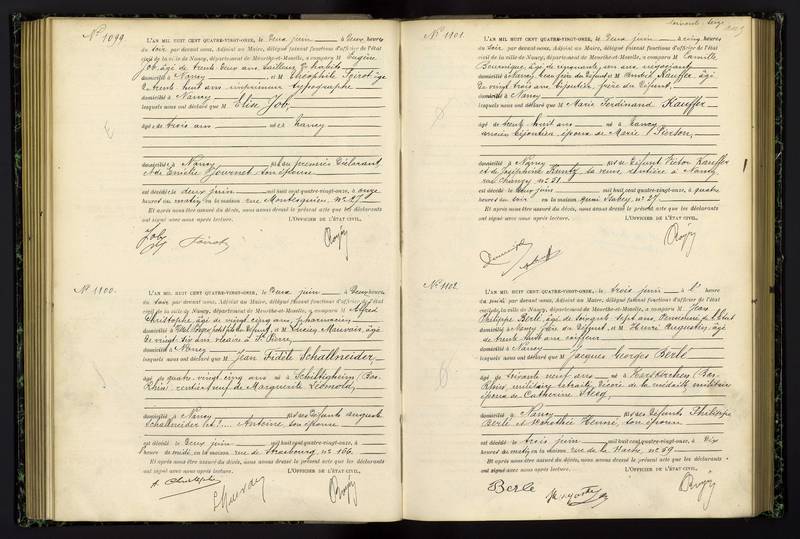 N° 1099.
L'AN MIL HUIT CENT QUATRE-VINGT-ONZE, le Deux juin à Deux heures
du soir par devant nous, Adjoint au Maire, délégué faisant fonctions d'officier de l'état
civil de la ville de Nancy, département de Meurthe-et-Moselle, a comparu M Eugène
Job, âgé de trente deux ans, tailleur d'habits
domicilié à Nancy et M Théophile Spirot âgé
de trente huit ans imprimeur typographe
domicilié à Nancy
lesquels nous ont déclaré que M Elise Job,
âgé de trois ans né à Nancy
domicilié à Nancy du premier Déclarant
et de Amélie Journet son épouse
est décédé le deux juin mil huit cent quatre-vingt-onze, à onze
heures du matin en la maison rue Montesquieu, n° 27
Et après nous être assuré du décès, nous avons dressé le présent acte que les déclarants
ont signé avec nous après lecture. L'OFFICIER DE L'ÉTAT CIVIL,
Job
N° 1100.
L'AN MIL HUIT CENT QUATRE-VINGT-ONZE, le Deux juin à Deux heures
du soir par devant nous, Adjoint au Maire, délégué faisant fonctions d'officier de l'état
civil de la ville de Nancy, département de Meurthe-et-Moselle, a comparu M Alfred
Christophe, âgé de vingt cinq ans, pharmacien
domicilié à petit fils du Défunt, et M Lucien Mauvais, âgé
de vingt six ans vicaire à St Pierre,
domicilié à Nancy
lesquels nous ont déclaré que M Jean Fidèle Schallneider,
âgé de quatre-vingt cinq ans né à Schiltigheim (Bas-
Rhin) rentier veuf de Marguerite Léopold,
domicilié à Nancy des Défunts auguste
Schallneider et ?.... Antoine, son épouse
est décédé le Deux juin mil huit cent quatre-vingt-onze, à
heures de midi en la maison rue de Strasbourg, n° 166.
Et après nous être assuré du décès, nous avons dressé le présent acte que les déclarants
ont signé avec nous après lecture. L'OFFICIER DE L'ÉTAT CIVIL,
A. Christophe
N° 1101.
L'AN MIL HUIT CENT QUATRE-VINGT-ONZE, le Deux juin à cinq heures
du soir par devant nous, Adjoint au Maire, délégué faisant fonctions d'officier de l'état
civil de la ville de Nancy, département de Meurthe-et-Moselle, a comparu M Camille
âgé de cinquante, un ans, négociant
domicilié à Nancy, beau frère du Défunt et M André Kauffer âgé
de vingt trois ans bijoutier, frère du Défunt,
domicilié à Nancy
lesquels nous ont déclaré que M Marie Ferdinand Kauffer
âgé de trente huit ans né à Nancy
ancien bijoutier époux de Marie Pierson,
domicilié à Nancy du Défunt Victor Kauffer
et de Joséphine Kuntz sa veuve rentière à Nancy,
rue Chanzy n° 51
est décédé le Deux juin mil huit cent quatre-vingt-onze, à quatre
heures du soir en la maison, quai Isabey, n° 27
Et après nous être assuré du décès, nous avons dressé le présent acte que les déclarants
ont signé avec nous après lecture. L'OFFICIER DE L'ÉTAT CIVIL,
N° 1102
L'AN MIL HUIT CENT QUATRE-VINGT-ONZE, le trois juin à 1h heures
du soir par devant nous, Adjoint au Maire, délégué faisant fonctions d'officier de l'état
civil de la ville de Nancy, département de Meurthe-et-Moselle, a comparu M Jean
Philippe Berlé, âgé de soixante sept ans, Pensionné de l'Etat
domicilié à Nancy frère du Défunt, et M Henri Augustin, âgé
de trente huit ans coiffeur
domicilié à Nancy
lesquels nous ont déclaré que M Jacques Georges Berlé
âgé de soixante neuf ans né à Keskastel (Bas-
Rhin), militaire retraité, décoré de la médaille militaire
époux de Catherine Steeg,
domicilié à Nancy des Défunts Philippe
Berlé et Dorothée Henné, son épouse
est décédé le trois juin mil huit cent quatre-vingt-onze, à Dix
heures du matin en la maison rue de la Hache, n° 59
Et après nous être assuré du décès, nous avons dressé le présent acte que les déclarants
ont signé avec nous après lecture. L'OFFICIER DE L'ÉTAT CIVIL,
Berlé